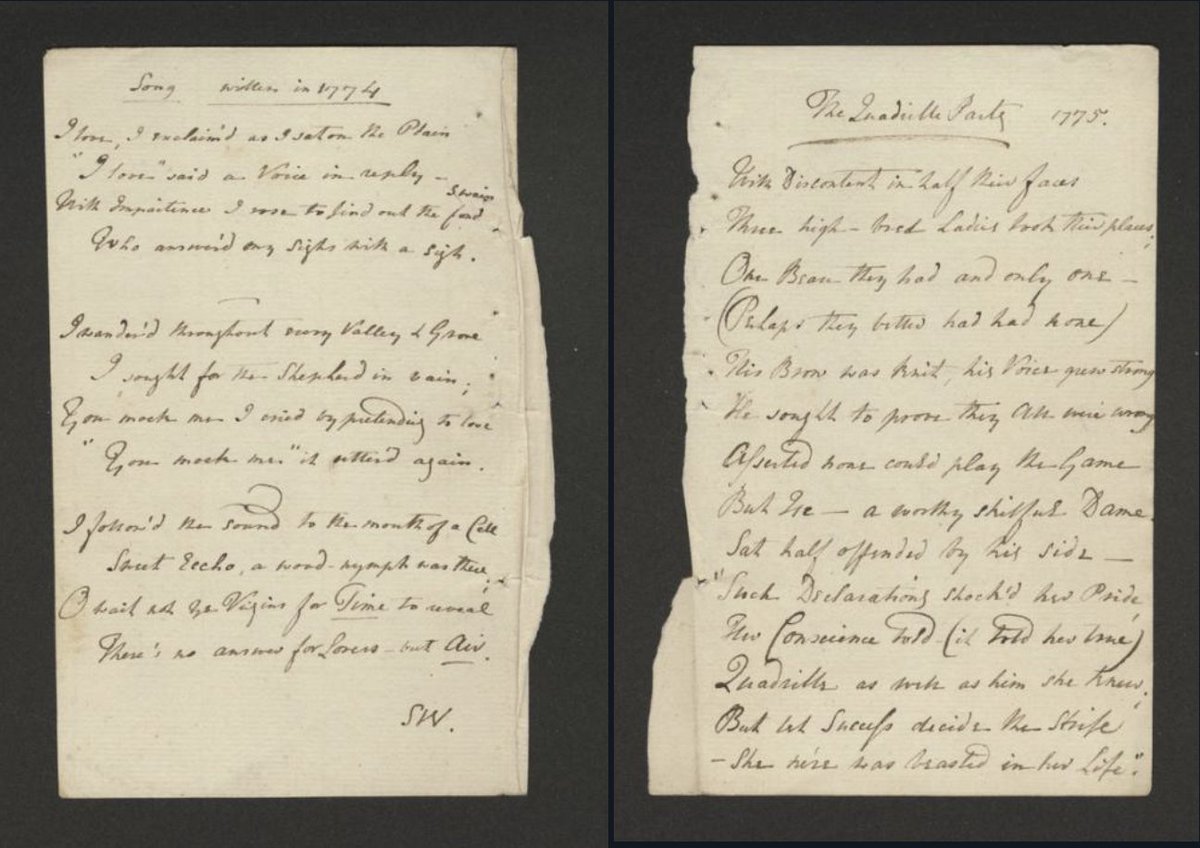 Song written in 1774
I love, I exclaim'd as I sat on the Plain
"I love" said a Voice in reply –
With Impatience I rose to find out the fond Swain
Who answer'd my sighs with a sigh.
I wander'd throughout every Valley & Grove
I sought for the Shepherd in vain;
You mock me I cried by pretending to love
"You mock me" it utter'd again.
I follow'd the sound to the mouth of a Cell
Sweet Eccho, a wood-nymph was there;
O wait not ye Virgins for Time to reveal
There's no answer for Lovers – but Air.
SW.
The Quadrille Party 1775.
With Discontent in half their faces
Three high-bred Ladies took their places;
One Beau they had and only one –
(Perhaps they better had had none)
His Brow was knit, his Voice grew strong
He sought to prove they All were wrong
Asserted none could play the Game
But He – a worthy skilful Dame
Sat half offended by his side –
"Such Declarations shock'd her Pride,
Her Conscience told (it told her true)
Quadrille as well as him she knew,
But let Success decide the Strife
– She ne'er was beasted in her Life".